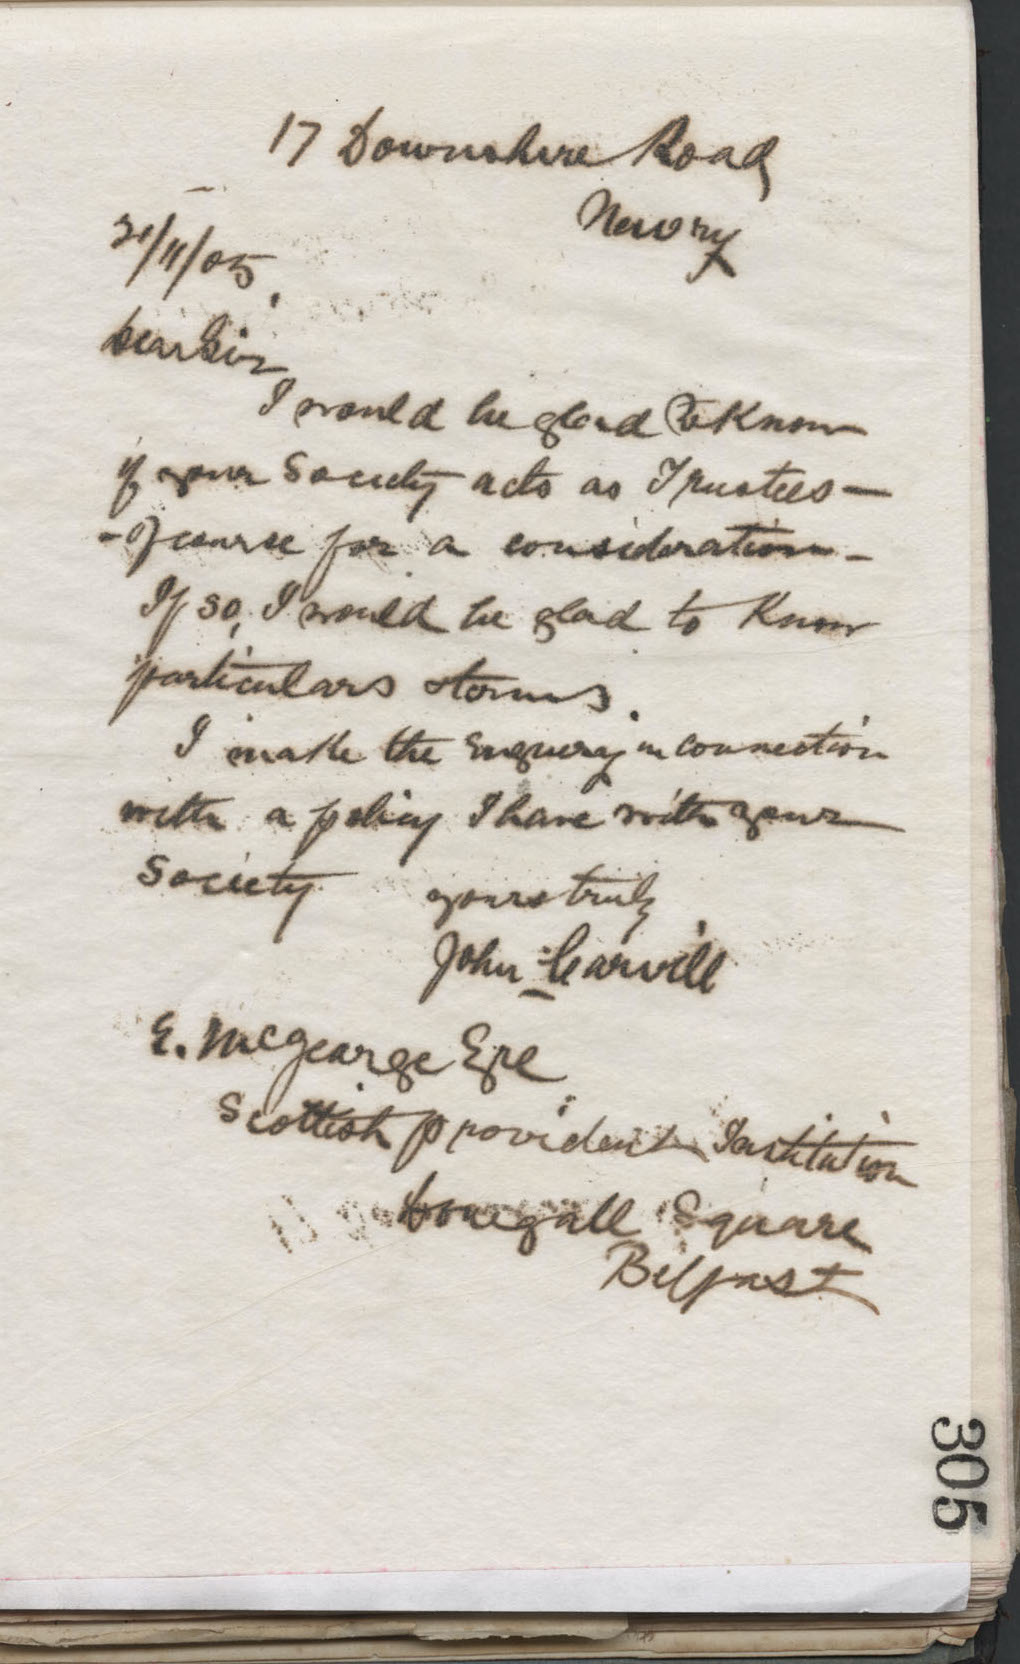 17 Downshire Road
Newry
21/11/05.
Dear Sir
I would be glad to Know
if your Society acts as Trustees —
- of course for a consideration -
If so, I would be glad to Know
particulars & terms.
I make the Enquiry in connection
with a policy I have with your
Society yours truly
John Carvill
E. McGearge Esqe
Scottish provident Institution
Donegall Square
Belfast
305